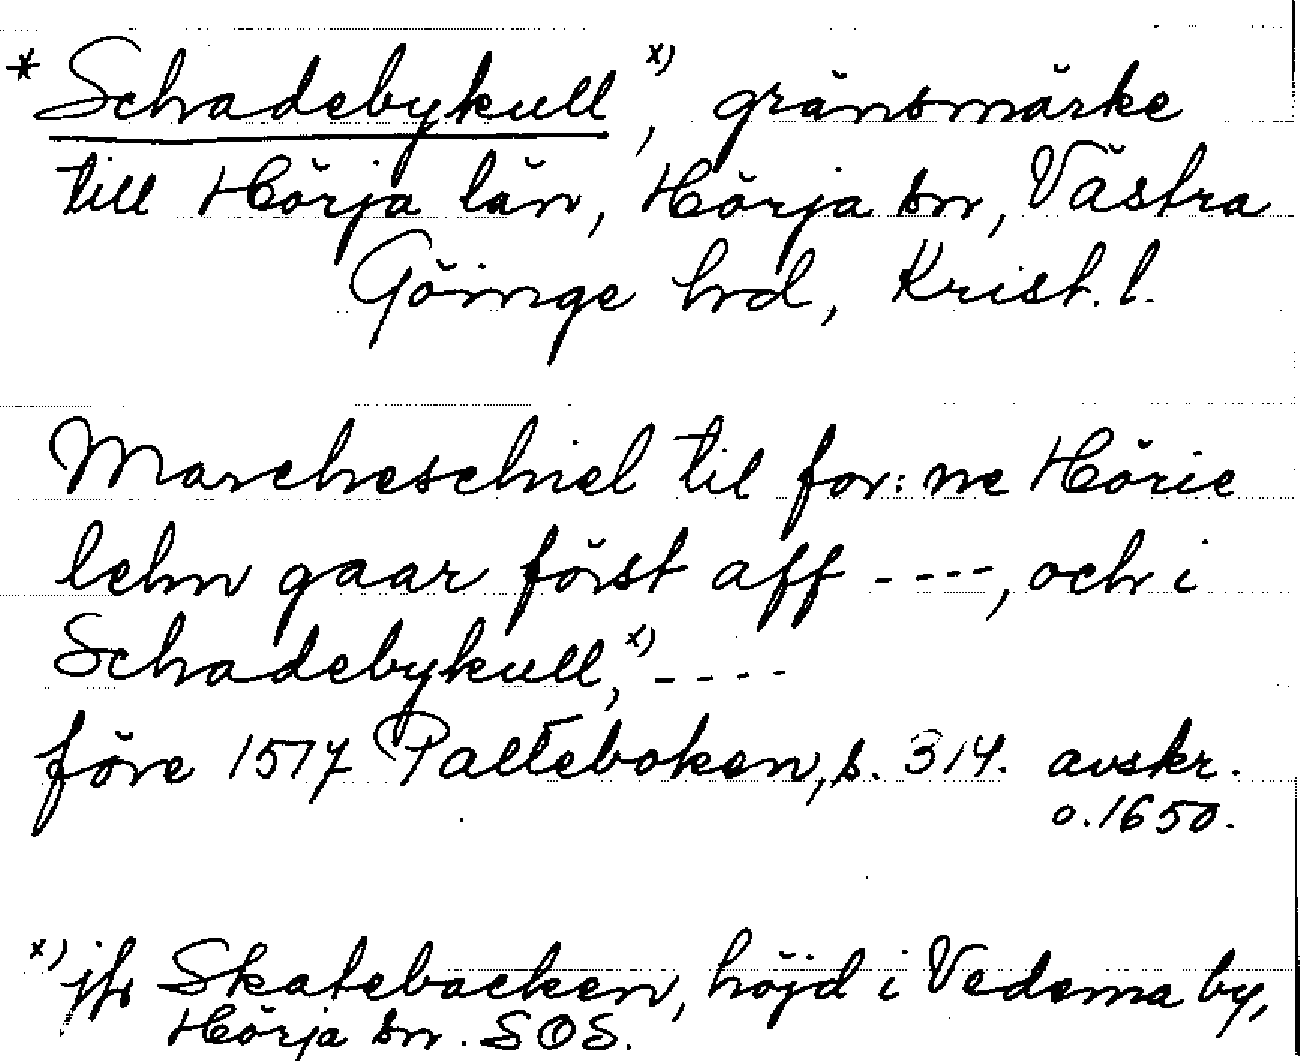 * Schadebykull x), gränsmärke
till Hörja län, Hörja sn, Västra
Göinge hrd, Krist. l.
Marcheschiel til for: ne Hörie
lehn gaar först aff ----, och i
Schadebykull, x) ----
före 1517 Palteboken, s. 314. avskr.
o. 1650.
x) jfr Skatebacken, höjd i Vedema by,
Hörja sn. SOS.